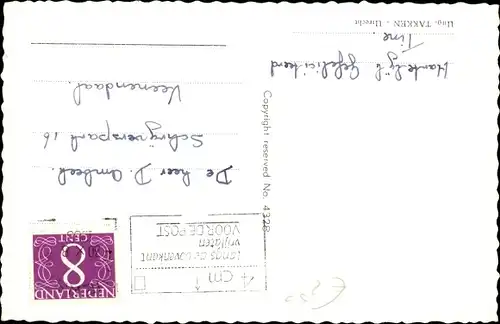 Hartelijk Gefeliciteerd
Tine.
Uitg. TAKKEN - Utrecht
Copyright reserved No. 4328
4 cm
langs de bovenkant
vrijlaten
VOOR DE POST
NEDERLAND
8
CENT
De heer D. Ambeek.
Schrijverspark 16
Veenendaal